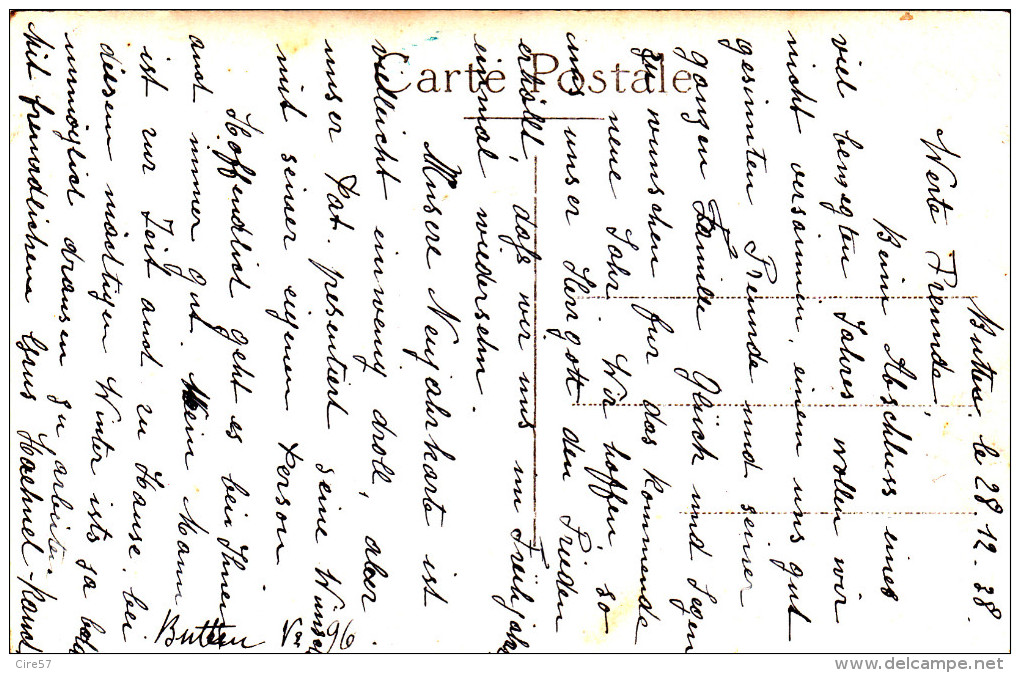 Butten, le 28.12.38.
Werte Freunde,
Beim Abschluss eines
viel bewegten Jahres wollen wir
nicht versäumen, einem uns gut
gesinnten Freunde und seiner
ganzen Familie Glück und Segen
zu wünschen fur das kommende
neue Jahr. Wir hoffen, so
uns unser Herrgott den Frieden
erhällt, daß wir uns im Frühjahr
einmal wiedersehn.
Unsere Neujahrkarte ist
vielleicht einwenig droll, aber
unser Pat. presentiert seine Wünsche
mit seiner eigenen Person.
Hoffendlich geht es bein Ihnen
auch immer gut. Mein Mann
ist zur Zeit auch zu Hause. bei
diesem mächtigen Winter ists ja
unmöglich drausen zu arbeiten.
Mit freundlichem Grus
Butten 96
Carte Postale
Cire57
www.delcampe.net